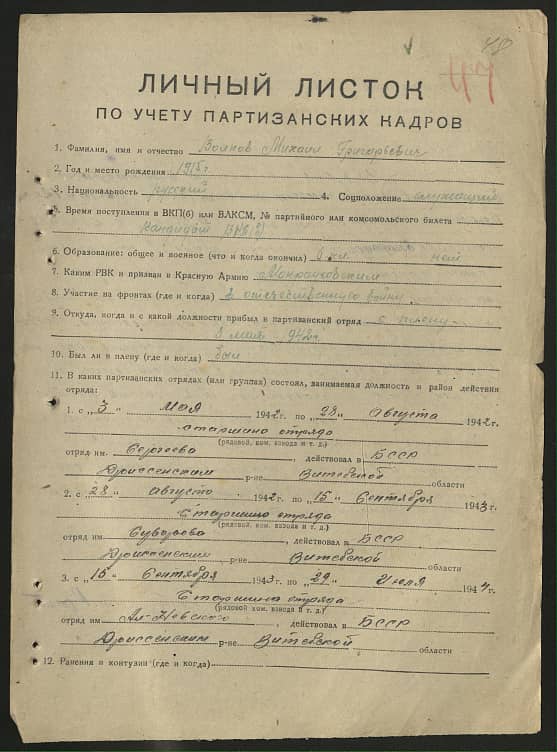 48
47
ЛИЧНЫЙ ЛИСТОК
ПО УЧЕТУ ПАРТИЗАНСКИХ КАДРОВ
1. Фамилия, имя и отчество Воинов Михаил Григорьевич
2. Год и место рождения 1915 г.
3. Национальность русский 4. Соцположение служащий
5. Время поступления в ВКП(б) или ВЛКСМ, № партийного или комсомольского билета
Кандидат ВКП(б)
6. Образование: общее и военное (что и когда окончил) 6 кл. нет
7. Каким РВК и призван в Красную Армию
8. Участие на фронтах (где и когда) В отечественную войну
9. Откуда, когда и с какой должности прибыл в партизанский отряд с плену
3 мая 942 г.
10. Был ли в плену (где и когда) был
11. В каких партизанских отрядах (или группах) состоял, занимаемая должность и район действия
отряда:
1. с „3" Мая 1942 г. по „28" Августа 1942 г.
старшина отряда
(рядовой, ком. взвода и т. д.)
отряд им. Сергеева, действовал в БССР
Дриссенским р-не Витебской области
2. с „28" августа 1942 г. по „15" Сентября 1943 г.
Старшина отряда
(рядовой, ком. взвода и т. д.)
отряд им Суворова, действовал в БССР
Дриссенским р-не Витебской области
3. с „15" Сентября 1943 г. по „29" Июля 1944 г.
Старшина отряда
(рядовой, ком. взвода и т. д.)
отряд им Ал-Невского, действовал в БССР
Дриссенским р-не Витебской области
12. Ранения и контузии (где и когда)